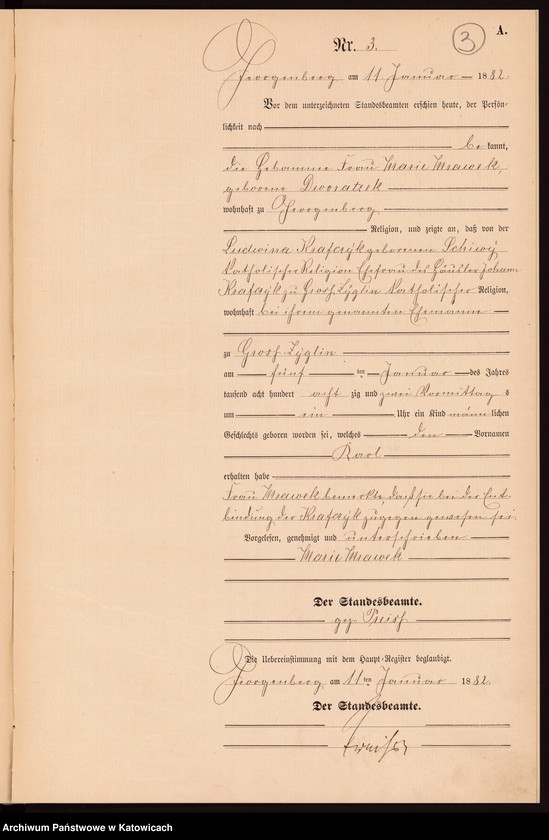 A.
Nr. 3.
3
Georgenberg am 11 Januar 1882.
Vor dem unterzeichneten Standesbeamten erschien heute, der Persön-
lichkeit nach
be kannt,
die Hebamme Frau Marie Mrawek,
geborene Dworatzek
wohnhaft zu Georgenberg
Religion, und zeigte an, daß von der
Ludwina Krafczyk geborenen
Katholischer Religion Ehefrau des Häusler Johann
Krafczyk zu Gross Zyglin Katholischer Religion,
wohnhaft bei ihrem genannten Ehemanne
zu Gross Zyglin
am fünf ten Januar des Jahres
tausend acht hundert acht zig und zwei Vormittag s
um ein Uhr ein Kind männ lichen
Geschlechts geboren worden sei, welches den Vornamen
Karl
erhalten habe
Frau Mrawek bemerkte, dass sie bei der Ent-
bindung der Krafczyk zugegen gewesen sei.
Vorgelesen, genehmigt und unterschrieben
Marie Mrawek
Der Standesbeamte.
gez.
Die Uebereinstimmung mit dem Haupt-Register beglaubigt.
Georgenberg am 11ten Januar 1882.
Der Standesbeamte.
Archiwum Państwowe w Katowicach